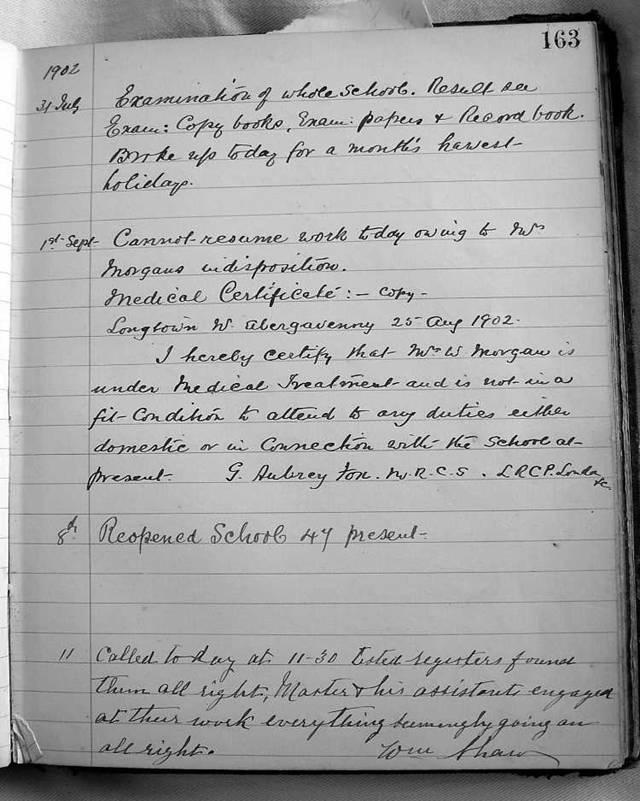 163
1902
31 July Examination of whole School. Result see
Exam: Copy books, Exam: papers & Record book.
Broke up today for a month's harvest
holidays.
1st Sept Cannot resume work today owing to Mrs
Morgans indisposition.
Medical Certificate :- Copy -
Longtown Nr Abergavenny 25 Aug 1902.
I hereby certify that Mrs W. Morgan is
under Medical Treatment and is not in a
fit Condition to attend to any duties either
domestic or in Connection with the School at
present. G. Aubrey Fox. M.R.C.S. L.R.C.P. London &c.
8th Reopened School 47 present.
11 Called to day at 11-30 Tested registers found
them all right, Master & his assistants engaged
at their work everything seemingly going on
all right. Wm Shaw